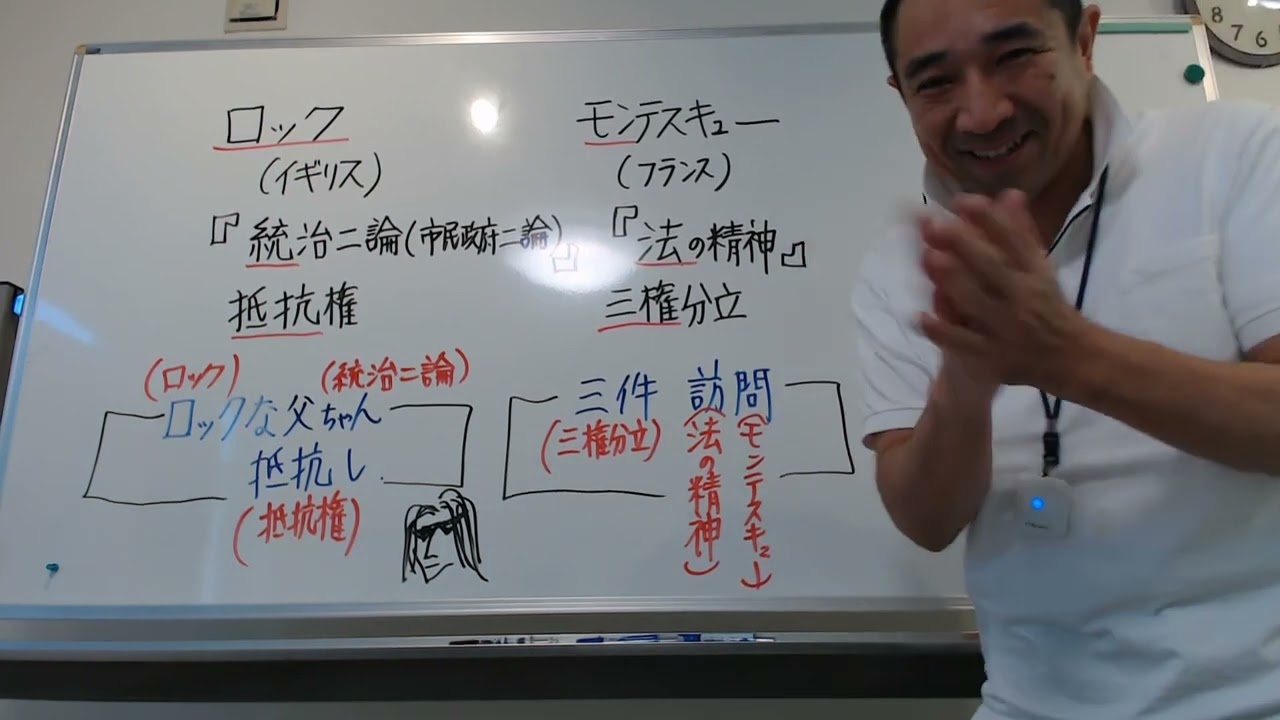 ロック
(イギリス)
『統治二論(市民政府二論)』
抵抗権
(ロック) (統治二論)
ロックな父ちゃん
抵抗し
(抵抗権)
モンテスキュー
(フランス)
『法の精神』
三権分立
三件 訪問
(三権分立)
(法の精神)
(モンテスキュー)
8
7
6
5